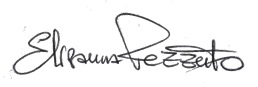 Elisanna Pezzuto